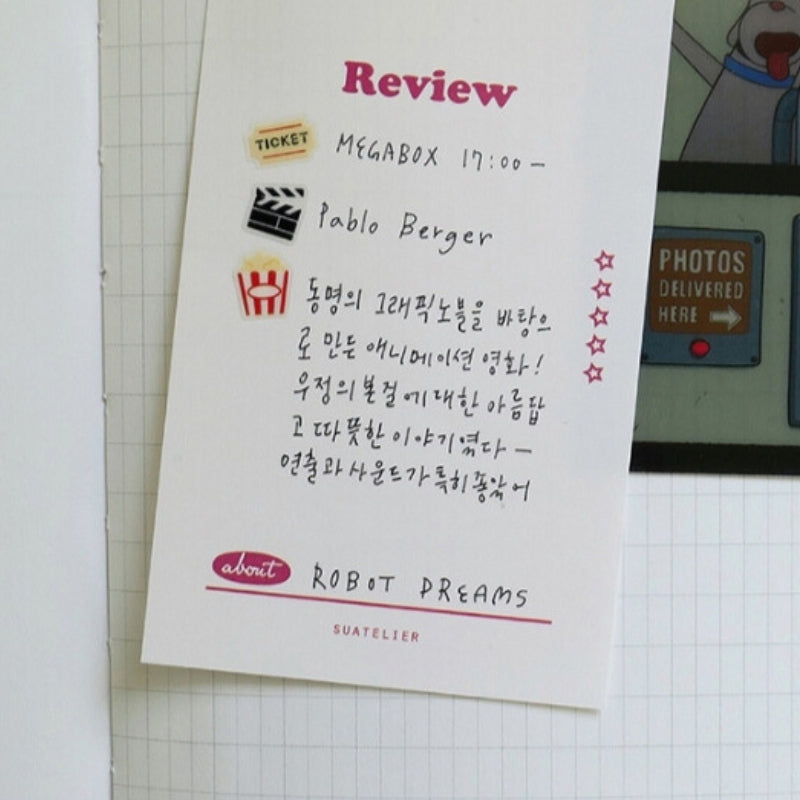 Review
TICKET
MEGABOX 17:00 -
Pablo Berger
동명의 그래픽노블을 바탕으
로 만든 애니메이션 영화!
우정의 본질에 대한 아름답
고 따뜻한 이야기였다 -
연출과 사운드가 특히 좋았어
about
ROBOT DREAMS
SUATELIER
PHOTOS
DELIVERED
HERE